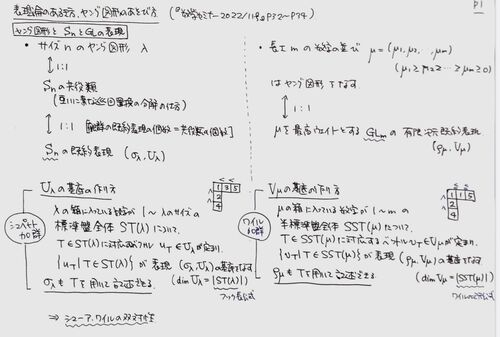 表現論のあそび方、ヤング図形のあそび方 (数学セミナー2022/11号 P32〜P34)
P1
ヤング図形と SnとGLの表現
・サイズ n のヤング図形 λ
↕ 1:1
Snの共役類
(互いに素な巡回置換の分解の仕方)
↕ 1:1 [有限群の既約表現の個数=共役類の個数]
Snの既約表現 (σλ, Uλ)
・長さ m の数字の並び μ=(μ1, μ2, …, μm)
(μ1≥μ2≥…≥μm≥0)
はヤング図形をなす
↕ 1:1
μを最高ウェイトとする GLmの有限次元既約表現
(ρμ, Vμ)
シュペヒト加群
Uλの基底の作り方
1 3 5
2
4
λの箱に入っている数字が 1〜λのサイズの
標準盤全体 ST(λ) について、
T∈ST(λ)に対応するベクトル uT∈Uλが定まり、
{uT|T∈ST(λ)} が表現 (σλ, Uλ) の基底をなす
(dim Uλ=|ST(λ)|)
σλもTを用いて記述できる。
フック長公式
ワイル加群
Vμの基底の作り方
1 3 5
2
4
μの箱に入っている数字が 1〜m の
半標準盤全体 SST(μ) について、
T∈SST(μ)に対応するベクトル vT∈Vμが定まり、
{vT|T∈SST(μ)} が表現 (ρμ, Vμ) の基底をなす
(dim Vμ=|SST(μ)|)
ρμもTを用いて記述できる。
ワイルの次元公式
⇒ シューア・ワイルの双対性